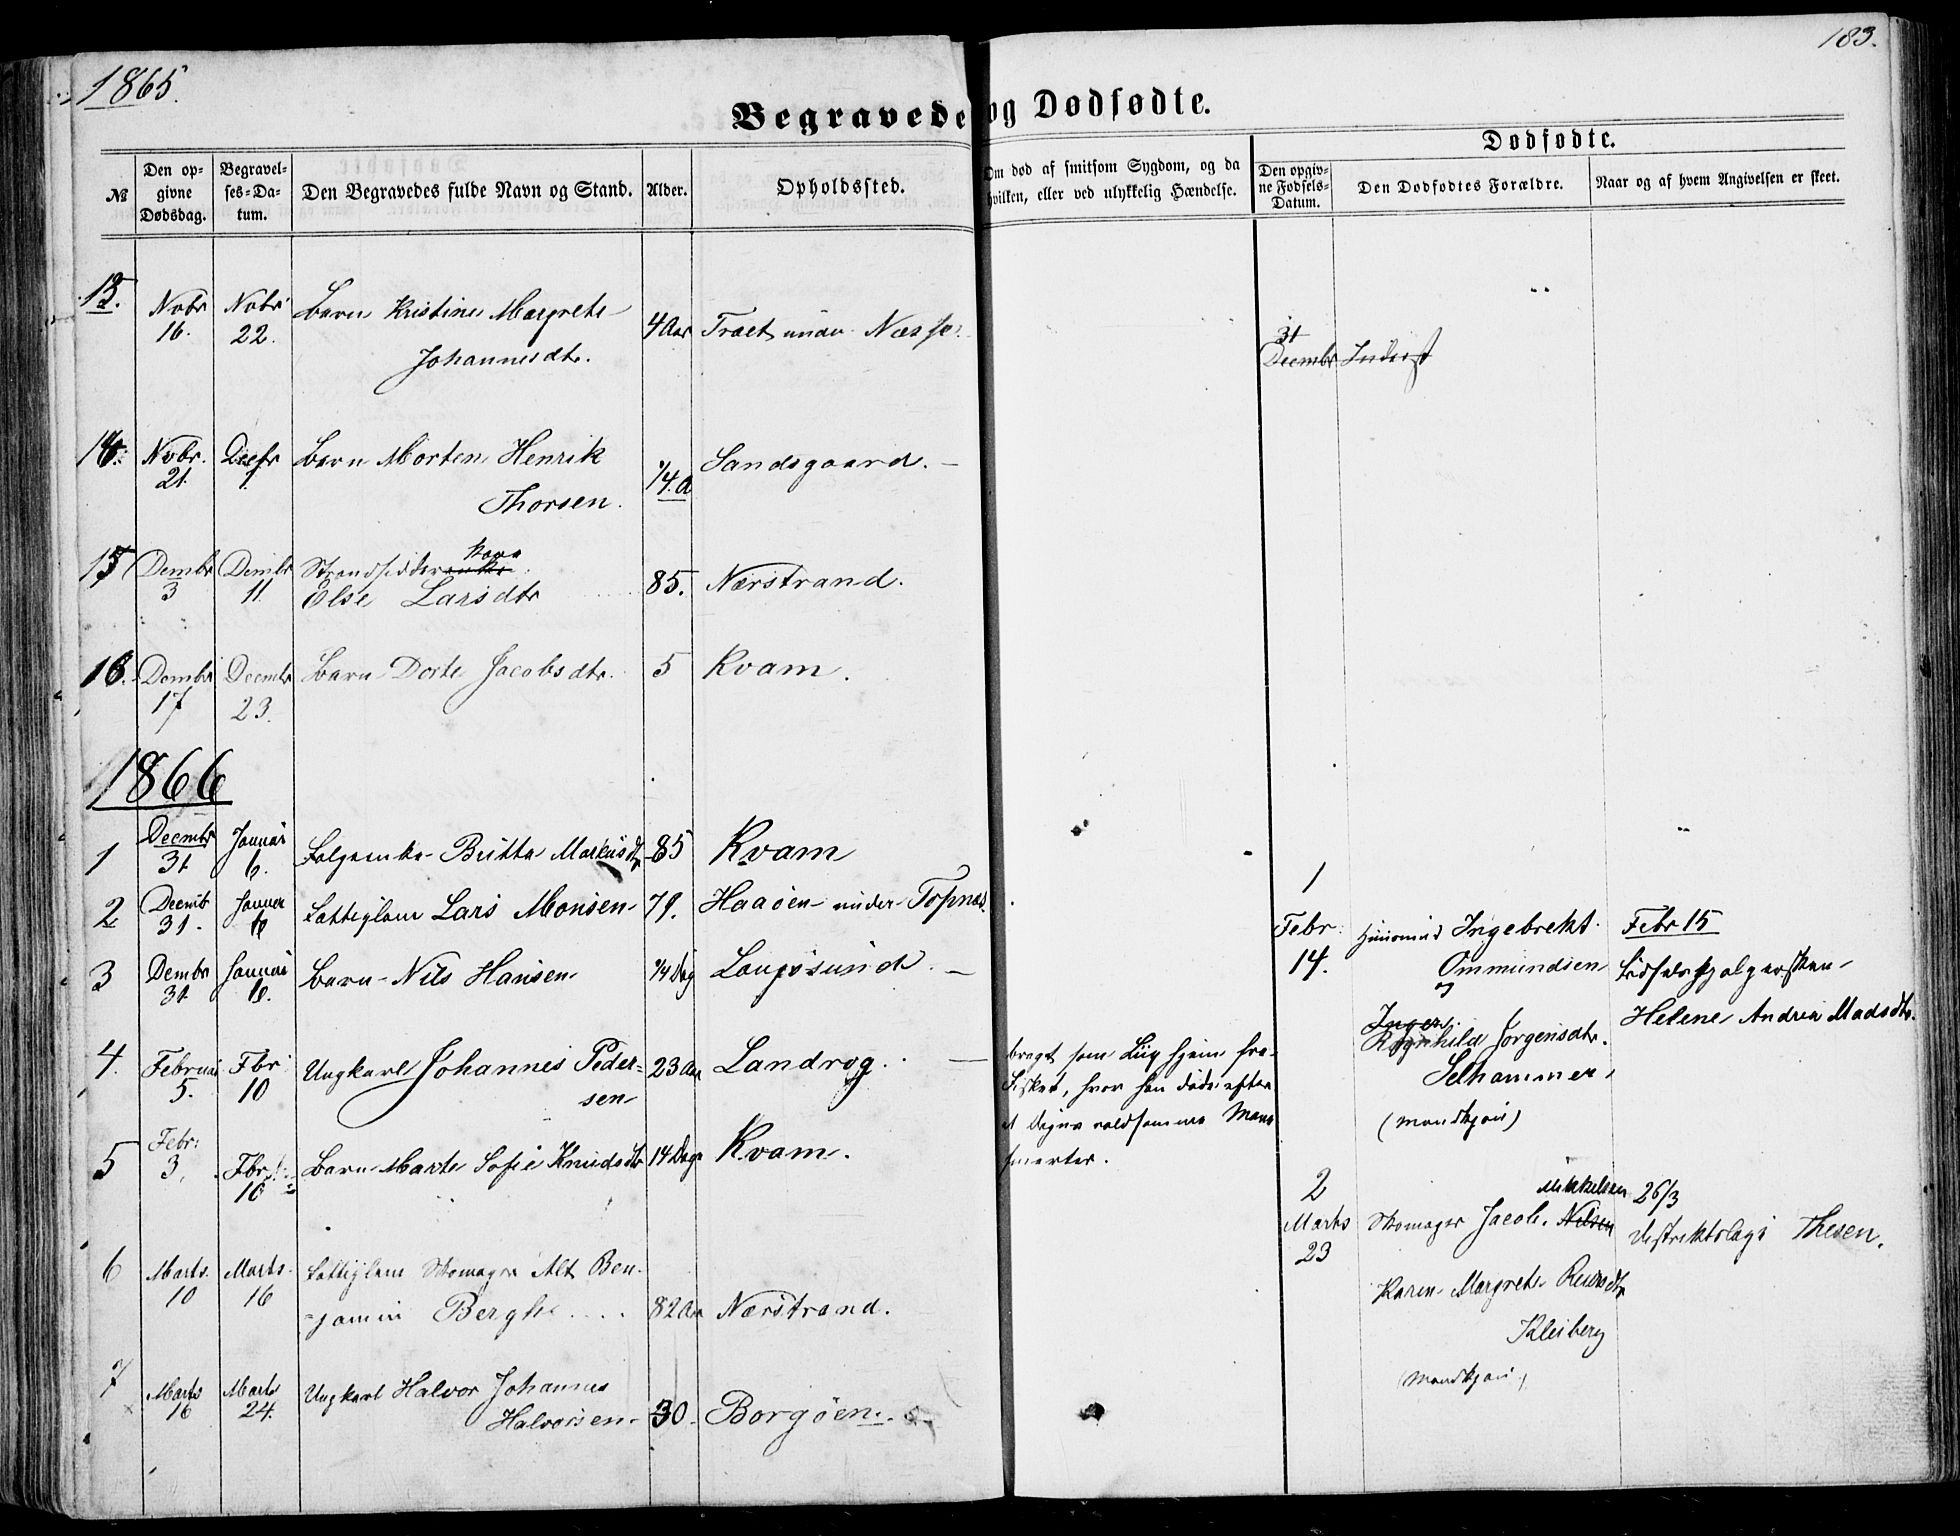 1865.
183.
Begravede og Dødfødte.
Dødfødte.
№
Den opgivne Dødsdag.
Begravelses-Datum.
Den Begravedes fulde Navn og Stand.
Alder.
Opholdssted.
Om død af smitsom Sygdom, og da hvilken, eller ved ulykkelig Hændelse.
Den opgivne Fødsels-Datum.
Den Dødfødtes Forældre.
Naar og af hvem Angivelsen er skeet.
13. Nobr 16. Nobr 22. Barn Kristine Margrete
Johannesdtr. 4 Aar Træet under
31
Decembr Inderst
14. Nobr. 21. Decbr 1. Barn Morten Henrik
Thorsen. 1/4 A Sandsgaard. —
15 Dembr 3 Dembr 11. Strandsidderenke Kone
Else Larsdtr 85. Nærstrand.
16. Dembr 17 Decembr 23. Barn Dorte Jacobsdtr. 5 Kvam.
1866
1 Decmbr 31 Januar 6. Folgeenke Britta Markusdtr 85 Kvam
2 Decmb 31. Januar Fattiglem Lars Monsen 79. Haaøen under Topnæs.
3 Dembr 31 Januar Barn Nils Hansen 1/4 Dag Loupssund. —
4. Februar 5. Fbr 10 Ungkarl Johannes Peder=
sen 23 Aar Landrøg. —
bragt som Liig hjem fra
Fisket, hvor han døde efter
et Døgns voldsomme Mave
smerter.
5 Febr: 3. Fbr. 16 Barn Marte Sofie Knudsdtr 14 Dage Kvam.
6 Marts. 10 Marts. 16 Fattiglem Skomager Alt Ben=
=jamin Berghe 82 Aar Nærstrand.
7 Marts 16 Marts 24. Ungkarl Halvor Johannes
Halvorsen 30. Borgøen.
1
Febr: 14.
Huusmand Ingebrekt
Ommundsen
og
Inger
Ragnhild Jørgensdtr.
Selhammer
(mandkjøn)
Febr 15
Fødselshjælpersken
Helene Andrea Madsdtr.
2
Marts 23
Mikkelsen
Skomager Jacob Nilsen
Karen Margrete Rasmdtr
Kleiberg
(Mandkjøn)
26/3
Distriktslæge Thesen.